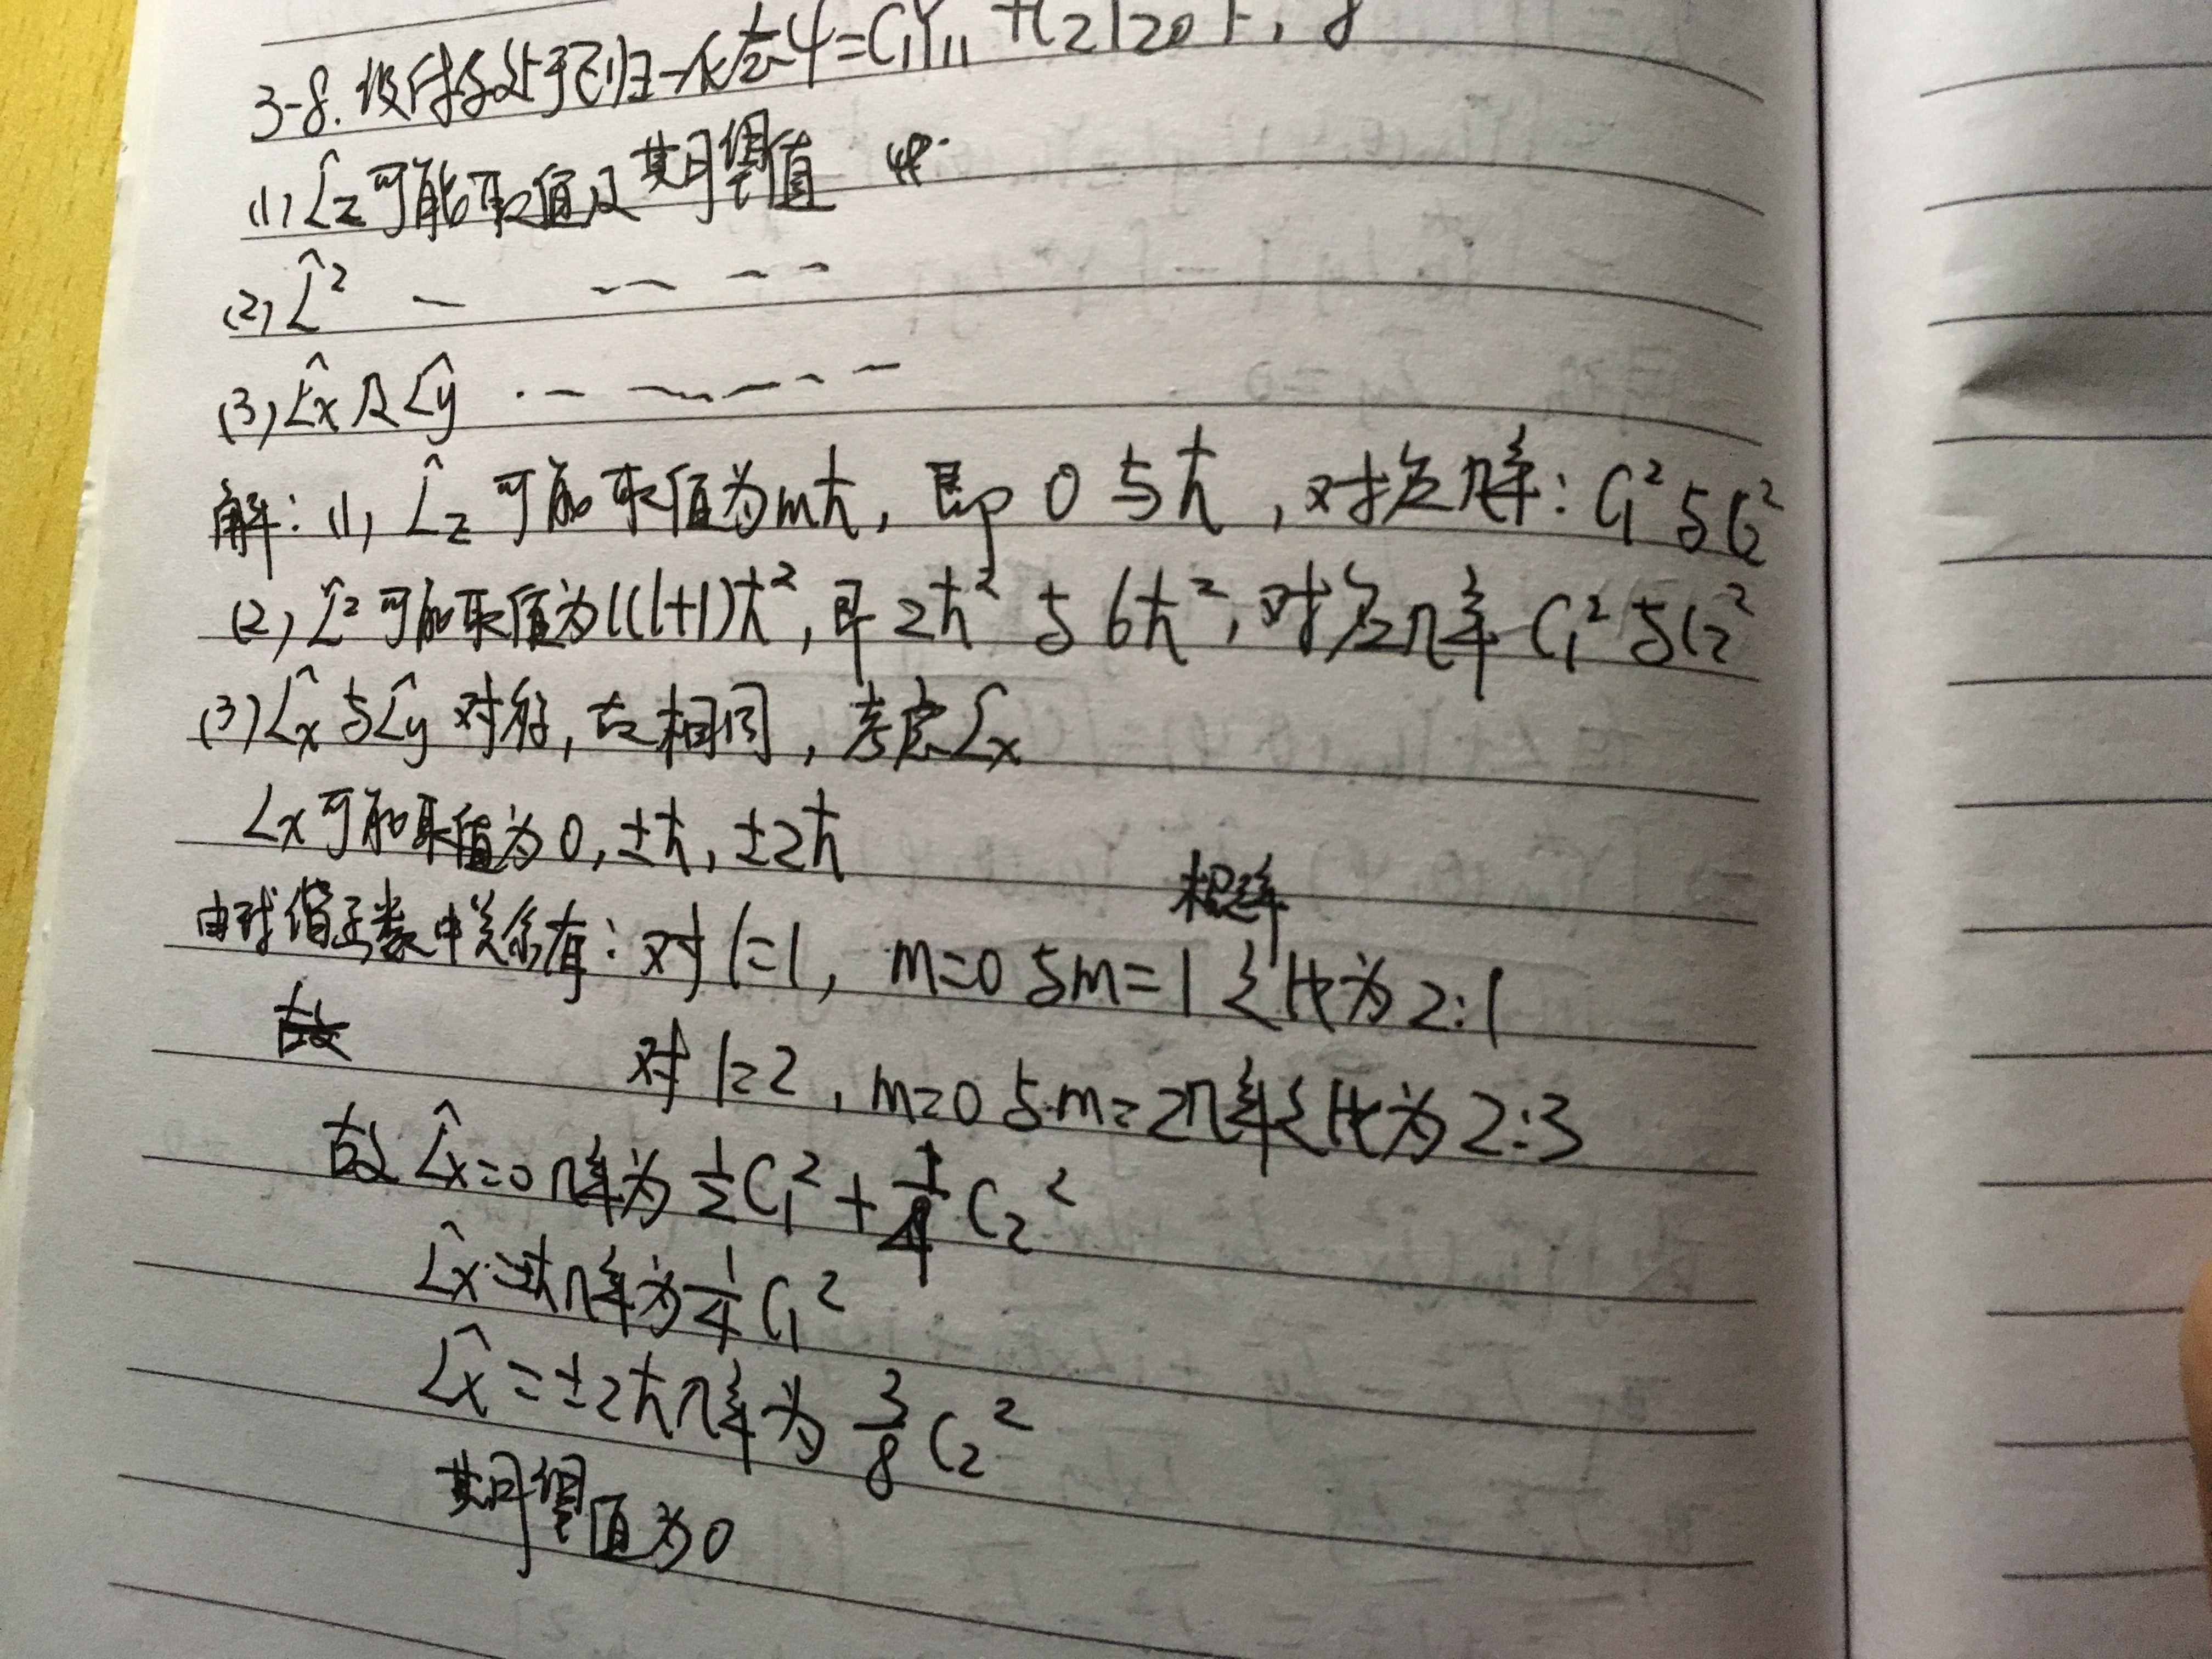 3-8. 设体系处于已归一化态ψ=C₁Y₁₁+C₂Y₂₀
(1) L̂z 可能取值及期望值
(2) L̂² — — — —
(3) L̂x 及 L̂y · — — — — —
解: (1) L̂z 可能取值为mħ, 即 0 与 ħ, 对应几率: C₁² 与 C₂²
(2) L̂² 可能取值为l(l+1)ħ², 即 2ħ² 与 6ħ², 对应几率 C₁² 与 C₂²
(3) L̂x 与 L̂y 对称, 故相同, 考虑 L̂x
Lx 可能取值为 0, ±ħ, ±2ħ
由球谐函数中关系有: 对 l=1, m=0 与 m=1 之比为 2:1
故
对 l=2, m=0 与 m=2几率之比为 2:3
故 L̂x=0 几率为 ½C₁² + ¼C₂²
L̂x=±ħ 几率为 ¼C₁²
L̂x=±2ħ 几率为 ⅜C₂²
期望值为0